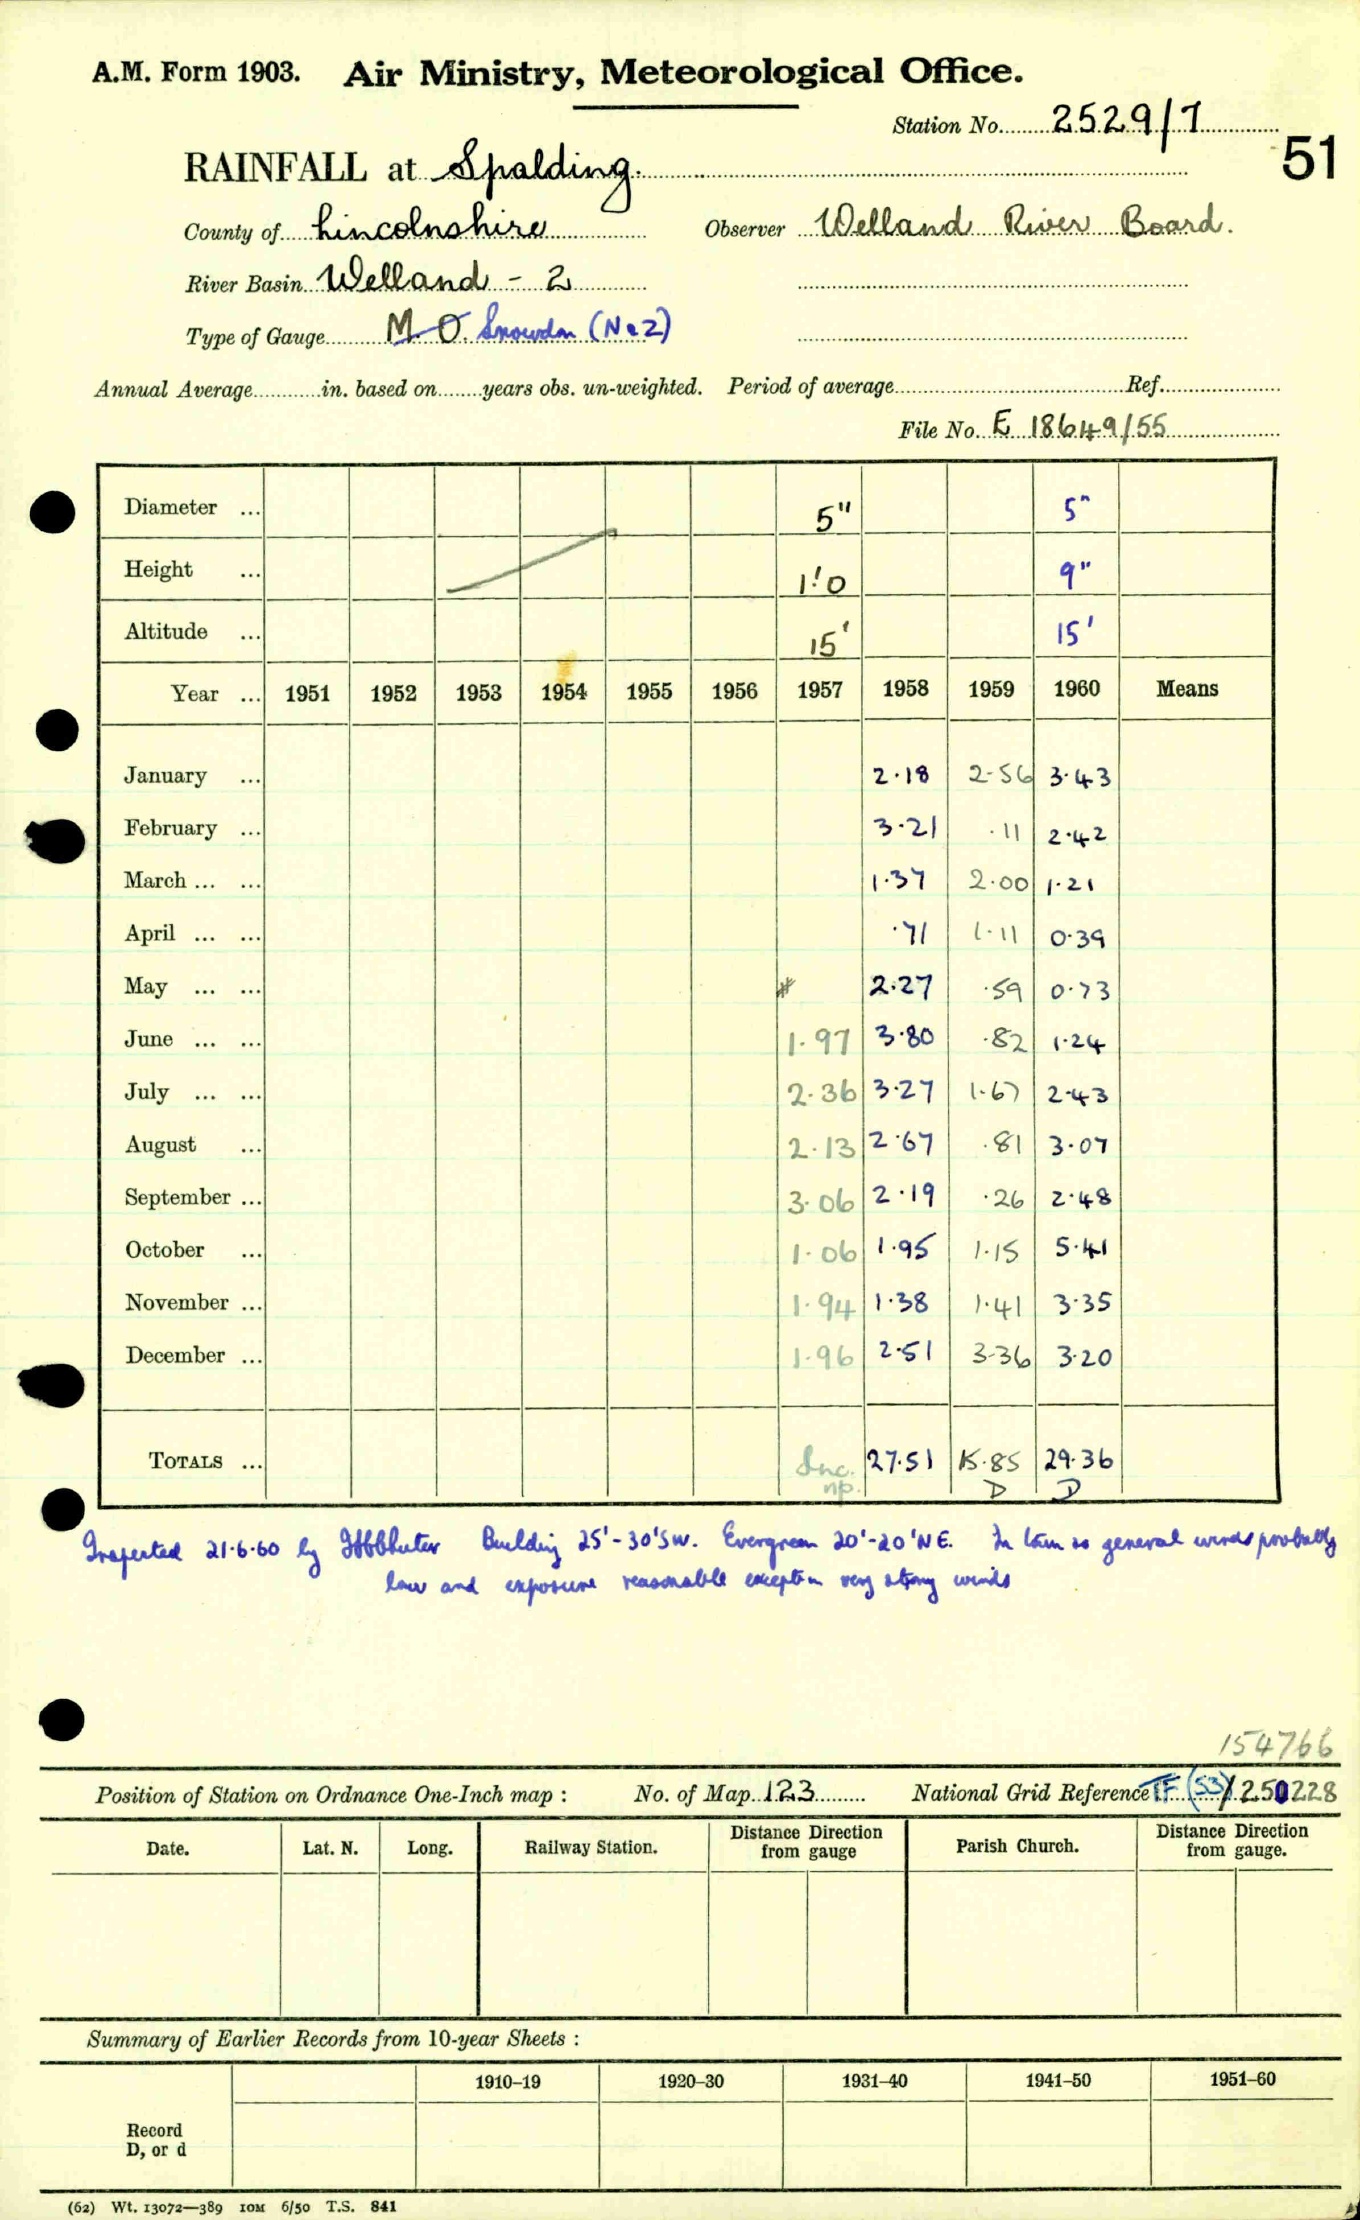 A.M. Form 1903. Air Ministry, Meteorological Office.
Station No. 2529/7
51
RAINFALL at Spalding.
County of Lincolnshire Observer Welland River Board.
River Basin Welland - 2
Type of Gauge M.O. Snowdon (No 2)
Annual Average in. based on years obs. un-weighted. Period of average Ref.
File No. E 18649/55
Diameter ... 5" 5"
Height ... 1'.0 9"
Altitude ... 15' 15'
Year ... 1951 1952 1953 1954 1955 1956 1957 1958 1959 1960 Means
January ... 2.18 2.56 3.43
February ... 3.21 .11 2.42
March ... ... 1.37 2.00 1.21
April ... ... .71 1.11 0.39
May ... ... 2.27 .59 0.73
June ... ... 1.97 3.80 .82 1.24
July ... ... 2.36 3.27 1.67 2.43
August ... 2.13 2.67 .81 3.07
September ... 3.06 2.19 .26 2.48
October ... 1.06 1.95 1.15 5.41
November ... 1.94 1.38 1.41 3.35
December ... 1.96 2.51 3.36 3.20
TOTALS ... Inc. 27.51 15.85 29.36
np. D D
Inspected 21.6.60 by Building 25'-30' SW. Evergreen 20'-20' NE. In town so general winds probably
low and exposure reasonable except in very strong winds
154766
Position of Station on Ordnance One-Inch map : No. of Map 123 National Grid Reference TF (53)/250228
Date. Lat. N. Long. Railway Station. Distance from gauge Direction Parish Church. Distance from gauge. Direction
Summary of Earlier Records from 10-year Sheets :
1910–19 1920–30 1931–40 1941–50 1951–60
Record
D, or d
(62) Wt. 13072—389 10M 6/50 T.S. 841